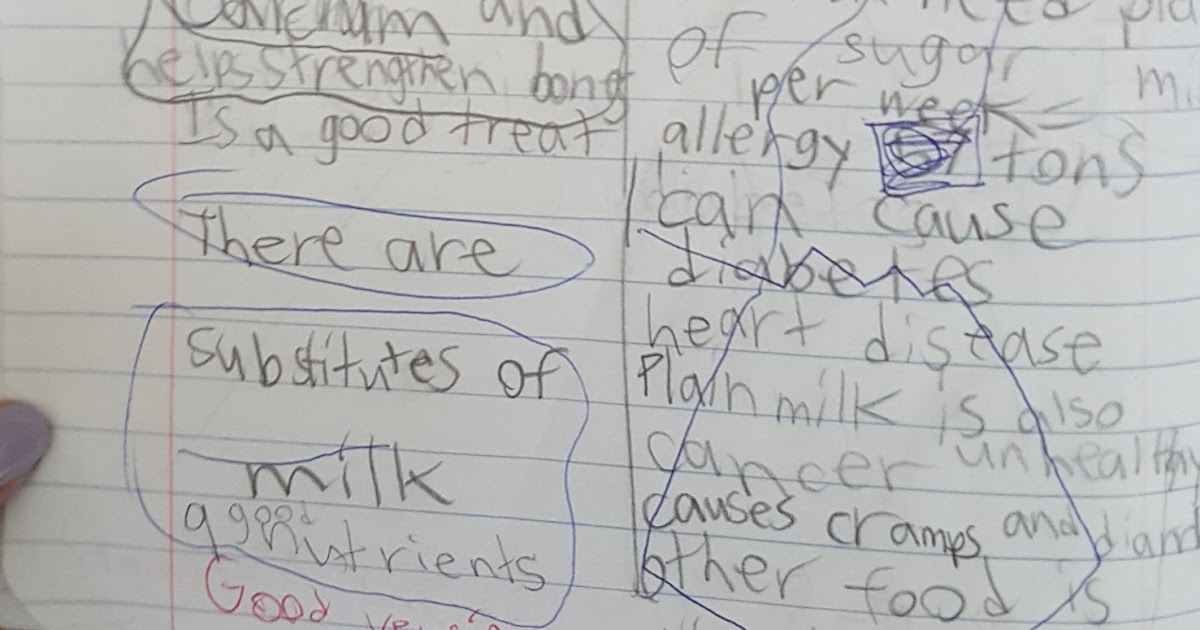 and
helps strengthen bons
Is a good treat
There are
substitutes of
milk
a good
nutrients
Good
of sugar
per week
allergy tons
can cause
diabetes
heart disease
Plain milk is also
cancer unhealthy
causes cramps and
other food is